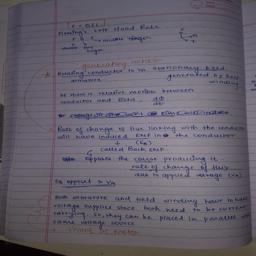 F = BIL
Fleming's Left Hand Rule
F B I
middle finger
thumb
finger
generating action
* Rotating conductor in a stationary field
armature
generated by field
winding
If there is relative motion between
conductor and field, dφ
dt
Rate of change of flux linking with the conductor
will have induced EMF in the conductor
↓ (Eb)
called Back EMF
opposes the cause producing it
rate of change of flux
due to applied voltage (Va)
Eb opposes Va
Both armature and field winding have to have
voltage supplies since both need to be current
carrying. So, they can be placed in parallel
same voltage source